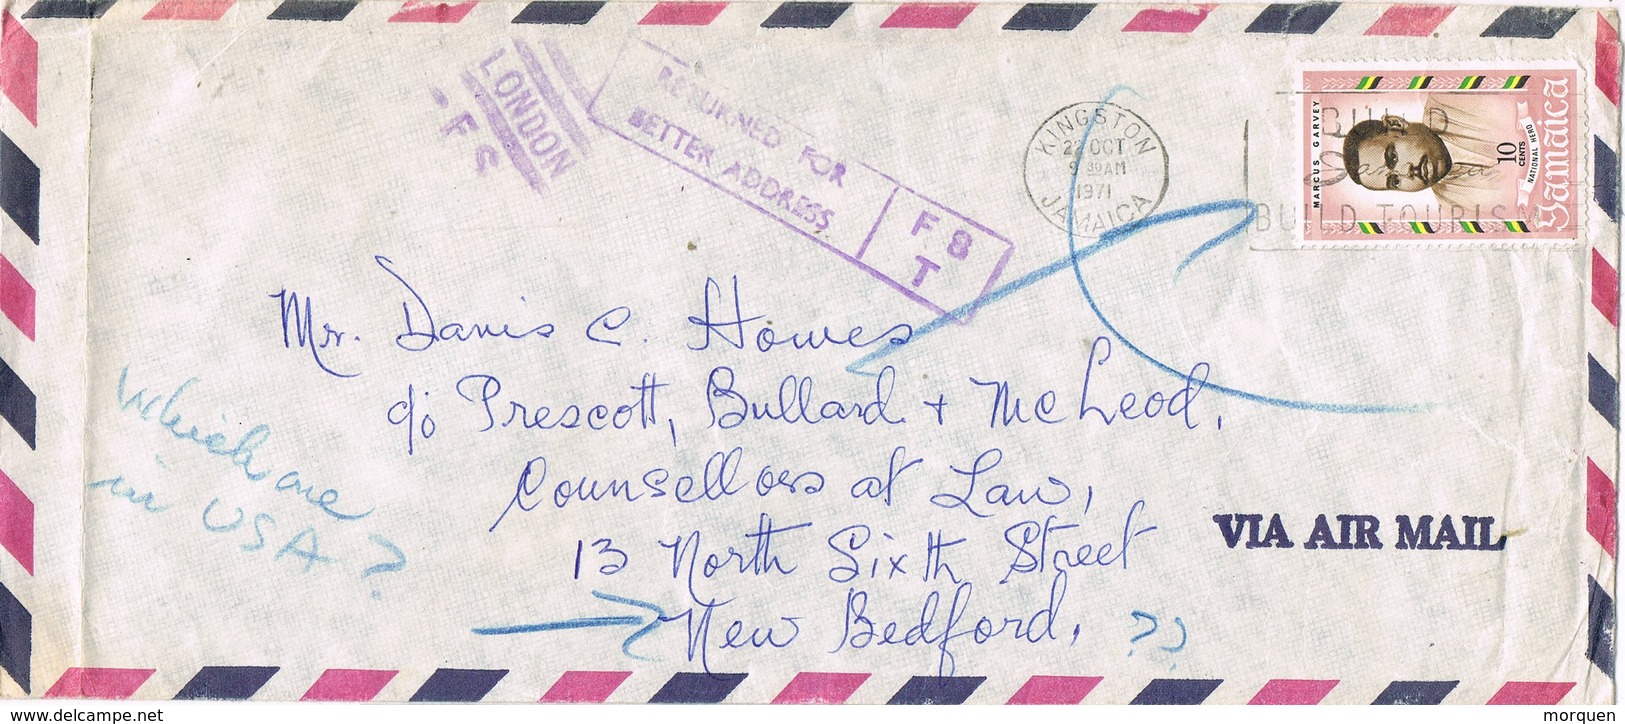 LONDON
F.S
RETURNED FOR
BETTER ADDRESS
F.S
T
KINGSTON
22 OCT
9 30 AM
1971
JAMAICA
BUILD
BUILD TOURISM
MARCUS GARVEY
10
CENTS
NATIONAL HERO
Jamaica
Mr. Davis C. Howes
c/o Prescott, Bullard + McLeod,
Counsellors at Law,
13 North Sixth Street
New Bedford, ??
Which one
in USA?
VIA AIR MAIL
www.delcampe.net
morquen